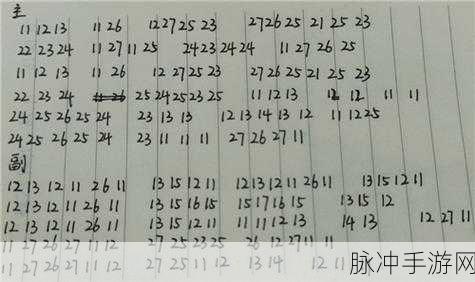 主
11 12 13 11 26 12 27 25 23 27 26 25 21 25 23
22 23 24 11 27 11 25 24 23 24 24 11 27 26 25
11 12 13 11 26 12 27 25 23 27 26 25 21 25 23
22 23 24 25 24 25 23 25 11 12 13 12 12 11 11
24 25 26 25 24 23 13 13 12 13 14 13 12 11 12 25
24 25 26 25 24 23 11 11 11 27 26 27 11
副
12 13 12 11 26 11 13 15 12 11 12 13 12 11 26 11 13 15 12 11
12 13 12 11 26 11 13 15 16 15 15 17 16 15 13 15 12
12 13 12 11 26 11 13 15 12 11 11 11 12 13 14 13 12 27 11
11 27 26 27 11 12 27 25 23 25 26 12 27 11 11
11 27 26 27 11 12 27 25 11 12 13 14 12 11
脉冲手游网